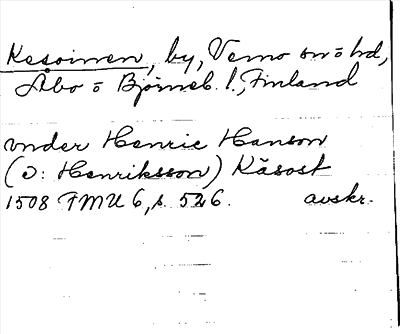 Kesoinen, by, Vemo sn o hd,
Åbo o Björneb. l., Finland
vnder Henric Hanson
(ɔ: Henriksson) Käsost
1508 FMU 6, s. 526. avskr.